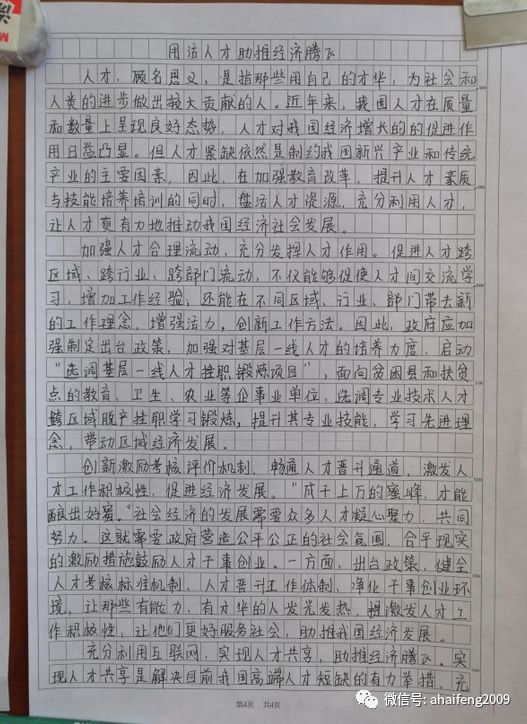 用活人才助推经济腾飞
人才，顾名思义，是指那些用自己的才华，为社会和
人类的进步做出较大贡献的人。近年来，我国人才在质量
和数量上呈现良好态势，人才对我国经济增长的的促进作
用日益凸显。但人才紧缺依然是制约我国新兴产业和传统
产业的主要因素，因此，在加强教育改革，提升人才素质
与技能培养培训的同时，盘活人才资源，充分利用人才，
让人才更有力地推动我国经济社会发展。
加强人才合理流动，充分发挥人才作用。促进人才跨
区域、跨行业、跨部门流动，不仅能够促使人才间交流学
习，增加工作经验，还能在不同区域、行业、部门带去新
的工作理念，增强活力，创新工作方法。因此，政府应加
强制定出台政策，加强对基层一线人才的培养力度，启动
“选调基层一线人才挂职锻炼项目”，面向贫困县和扶贫
点的教育、卫生、农业等企事业单位，选调专业技术人才
跨区域脱产挂职学习锻炼，提升其专业技能，学习先进理
念，带动区域经济发展。
创新激励考核评价机制，畅通人才晋升通道，激发人
才工作积极性，促进经济发展。“成千上万的蜜蜂，才能
酿出好蜜。”社会经济的发展需要众多人才凝心聚力，共同
努力。这就需要政府营造公平公正的社会氛围，合乎现实
的激励措施鼓励人才干事创业。一方面，出台政策，健全
人才考核标准机制、人才晋升工作体制，净化干事创业环
境，让那些有能力，有才华的人发光发热，提激发人才工
作积极性，让他们更好服务社会，助推我国经济发展。
充分利用互联网，实现人才共享，助推经济腾飞。实
现人才共享是解决目前我国高端人才短缺的有力举措。充
第4页 共4页
微信号: ahaifeng2009